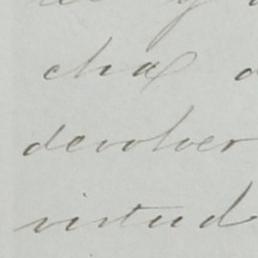 cha
devolver
virtud